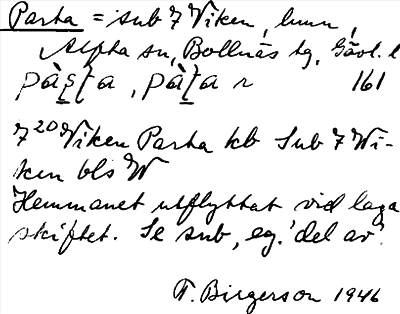 Parta = sub 7 Viken, hmn,
Alfta sn, Bollnäs tg, Gävl. l
pàs̱ṯa, pàṯa r 161
7²⁰ Viken Parta kb Sub 7 Wi-
ken bls W
Hemmanet utflyttat vid laga
skiftet. Se sub, eg. 'del av'.
F. Birgerson 1946